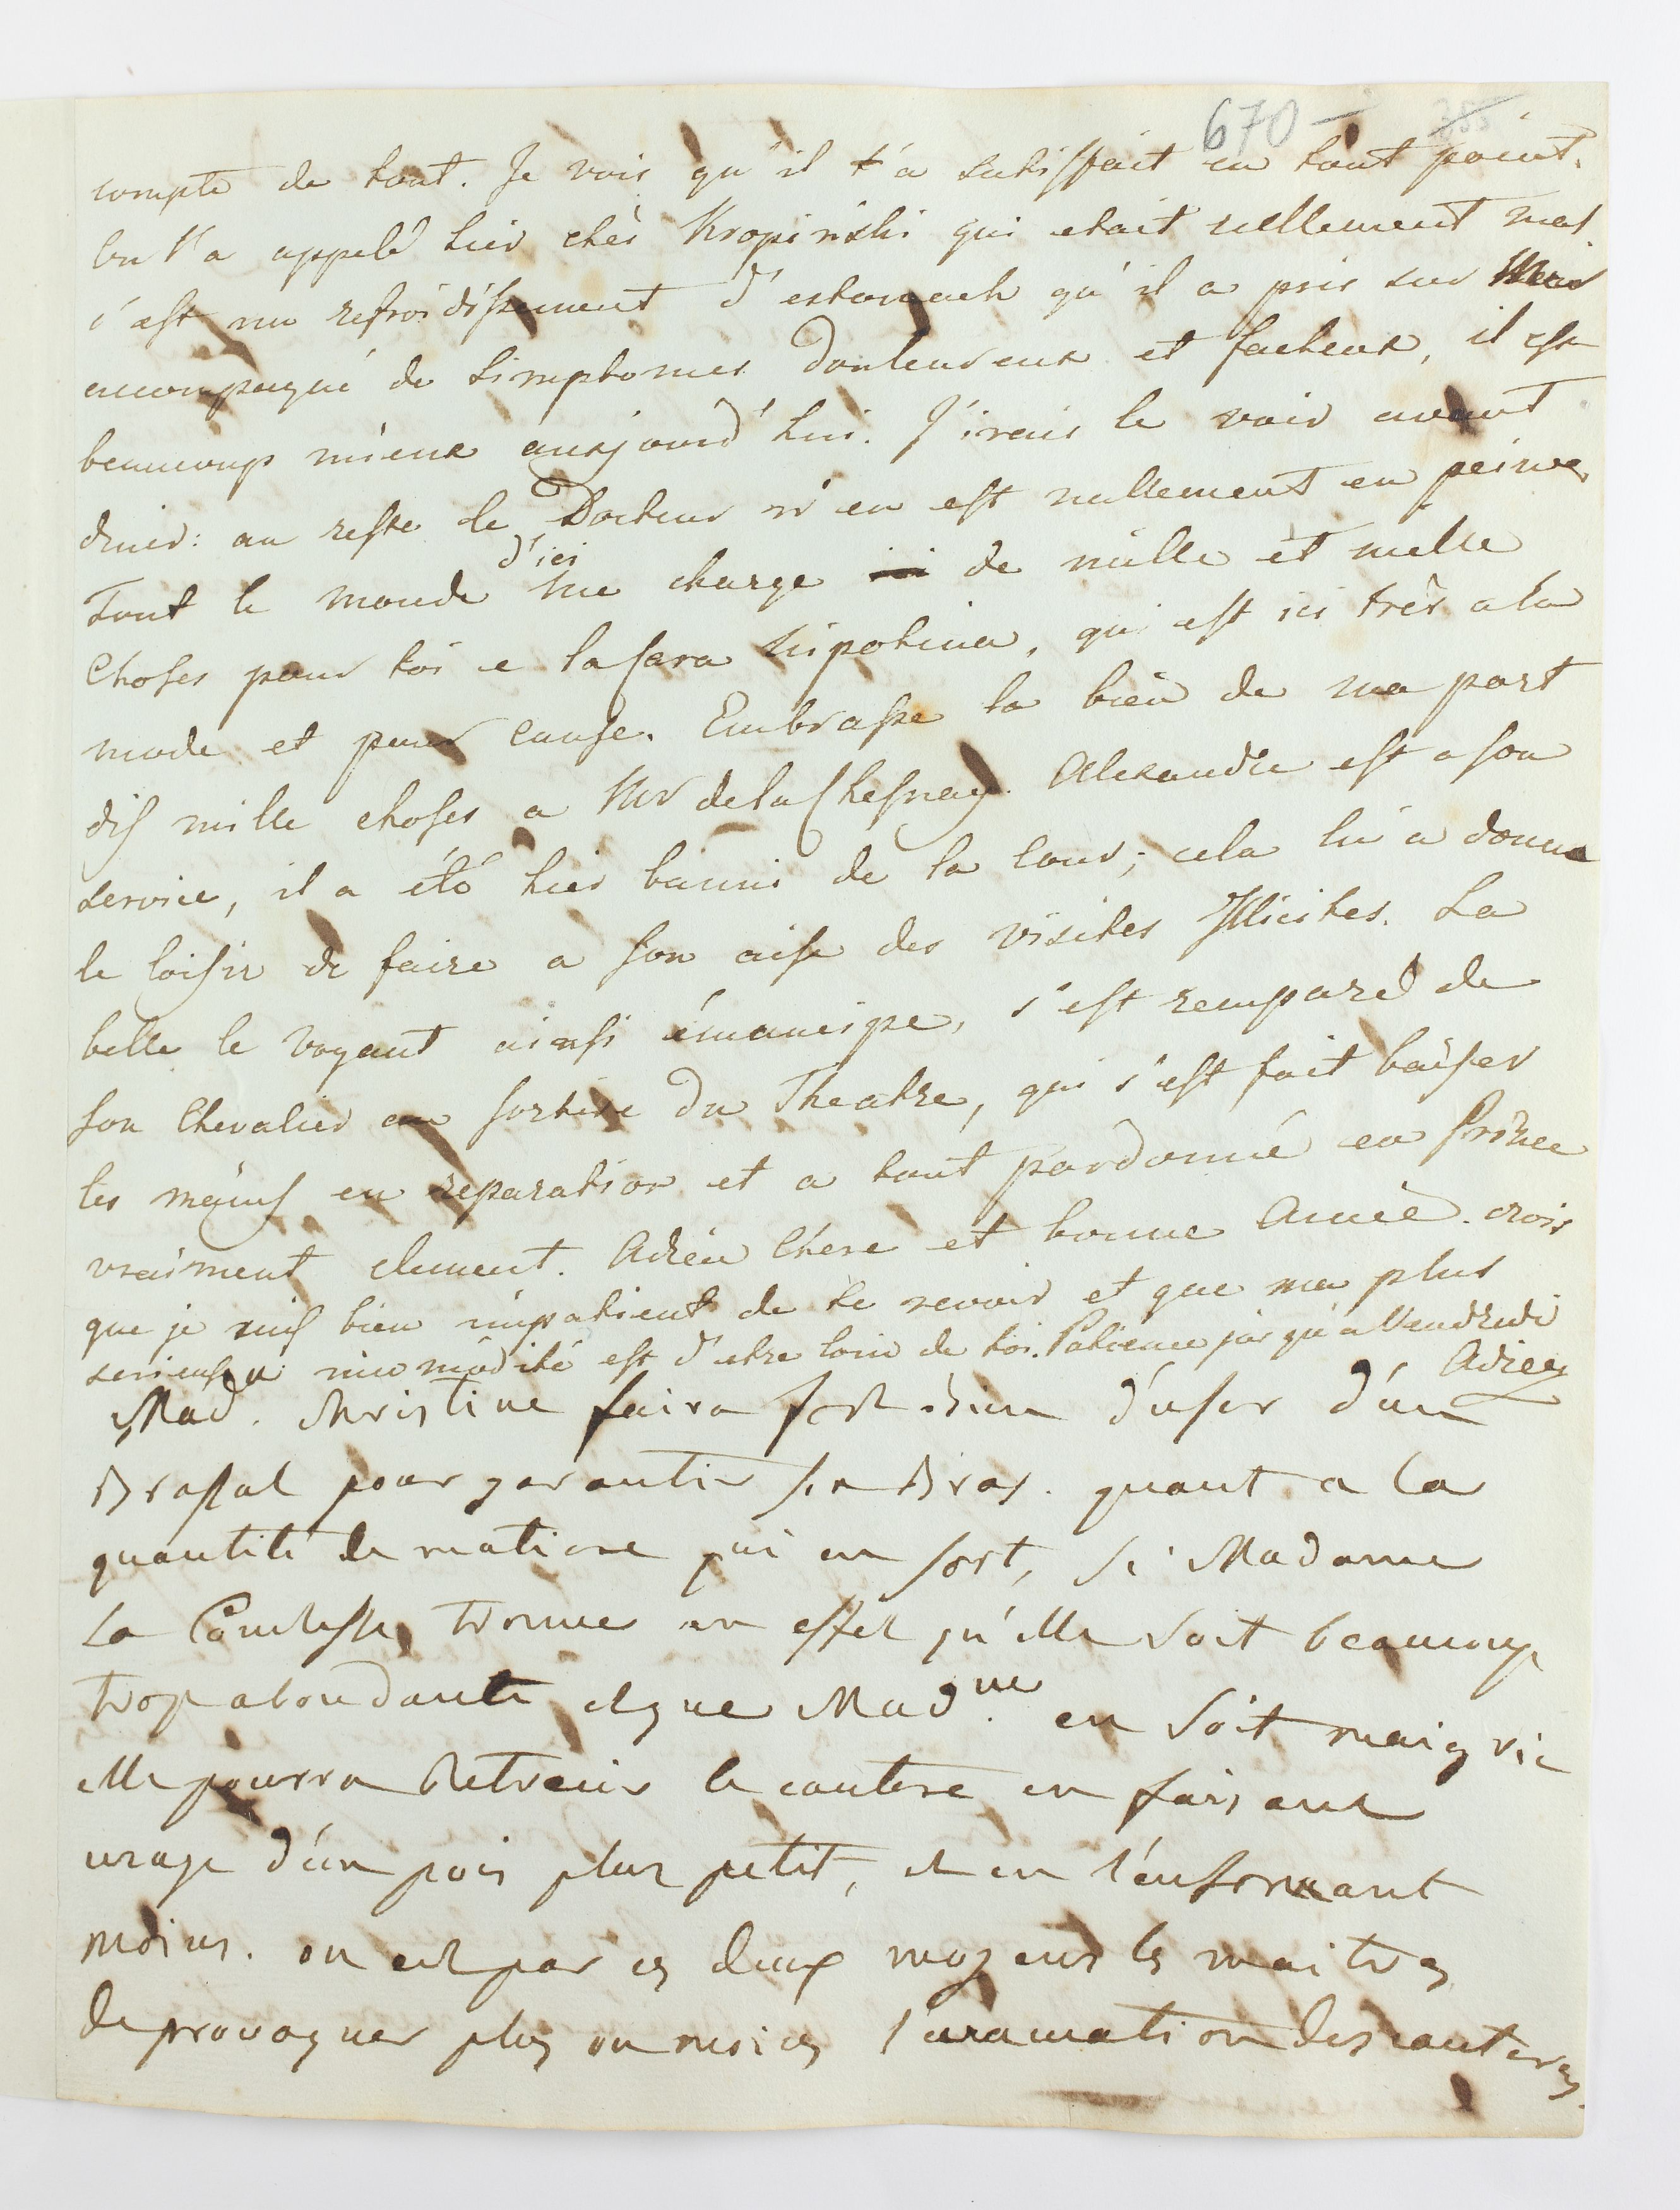 670 -
compte de tout. Je vois qu'il t'a satisffait en tout point.
On l'a appelé hier chès Kropiński qui etait reellement mal.
c'est un refroidissement d'estomach qu'il a pris sur
accompagné de simptomes douloureux et facheux, il est
beaucoup mieux aujourd'hui. J'irais le voir avant
diner: au reste le Docteur n'en est nullement en peine.
d'ici
Tout le monde me charge de mille et mille
choses pour toi e la sera Hipotina, qui est ici très a la
mode et pour cause. Embrasse la bien de ma part
dis mille choses a Mr de la Chesnay. Alexandre est a son
service, il a été hier banni de la Cour; cela lui a donné
le loisir de faire a son aise des visites Illicites. La
belle le voyant ainsi émancipe, s'est remparé de
son Chevalier en sortire du Theatre, qui s'est fait baiser
les mains en reparation et a tout pardonné en Prince
vraiment clement. Adieu Chere et bonne Amie. crois
que je suis bien impatient de te revoir et que ma plus
serieuse incomodité est d'etre loin de toi. Patience jusqu'a Vendredi
Adieu
Mad. Christine faira fort bien d'user d'un
Brassal pour garantir son Bras. quant a la
quantité de matiere qui en sort, si Madame
La Comtesse trouve en effet qu'elle soit beaucoup
trop abondante et que Mad.me en soit maigrie
elle pourra Retrecir le cautere en faisant
usage d'un pois plus petit, et en l'enfermant
moins. on est par ces deux moyens les maitres
de provoquer plus ou moins des cauteres.